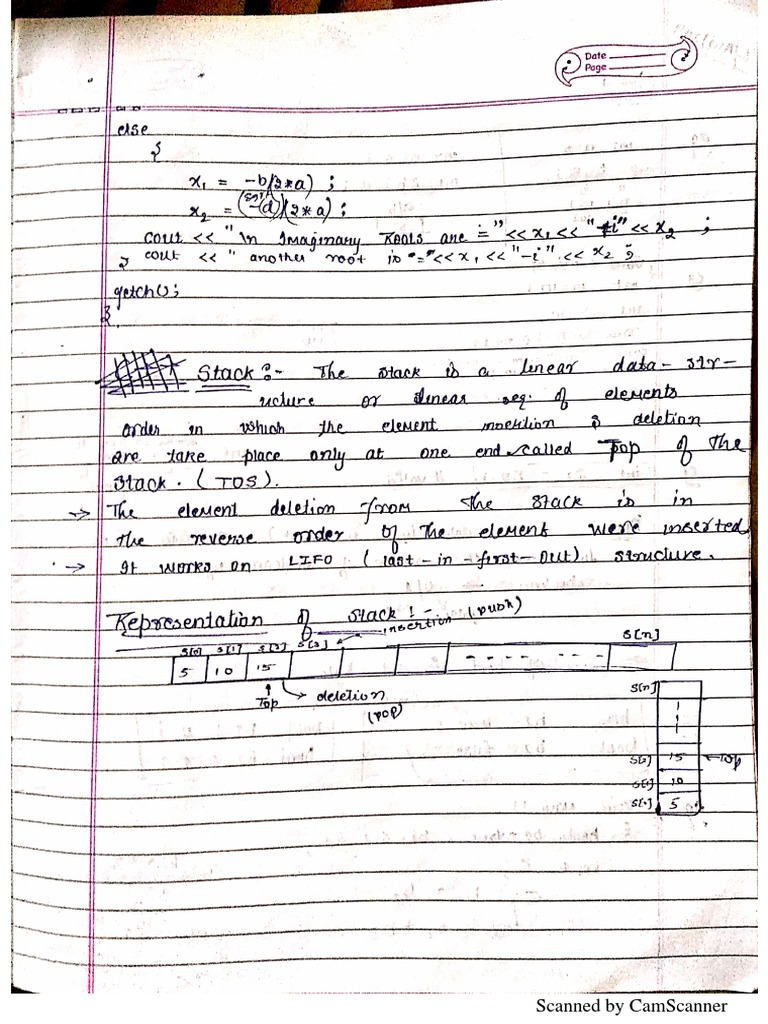 Date
Page
else
{
x1 = -b/(2*a) ;
x2 = (sqrt(-d))/(2*a) ;
cout << " In Imaginary Roots are =" << x1 << "+i" << x2 ;
cout << " another root is "=" << x1 << "-i" << x2 ;
}
getch();
}
Stack :- The stack is a linear data-str-
ucture or linear seq. of elements
order in which the element insertion & deletion
are take place only at one end called Top of the
Stack. (TOS).
→ The element deletion from the stack is in
the reverse order of the element were inserted
→ It works on LIFO (last-in-first-out) structure.
Representation of Stack :-
insertion (push)
S[0] S[1] S[2] S[3] S[n]
5 10 15 - - - - - - -
Top deletion
(pop)
S[n]
S[2] 15 ←Top
S[1] 10
S[0] 5
Scanned by CamScanner